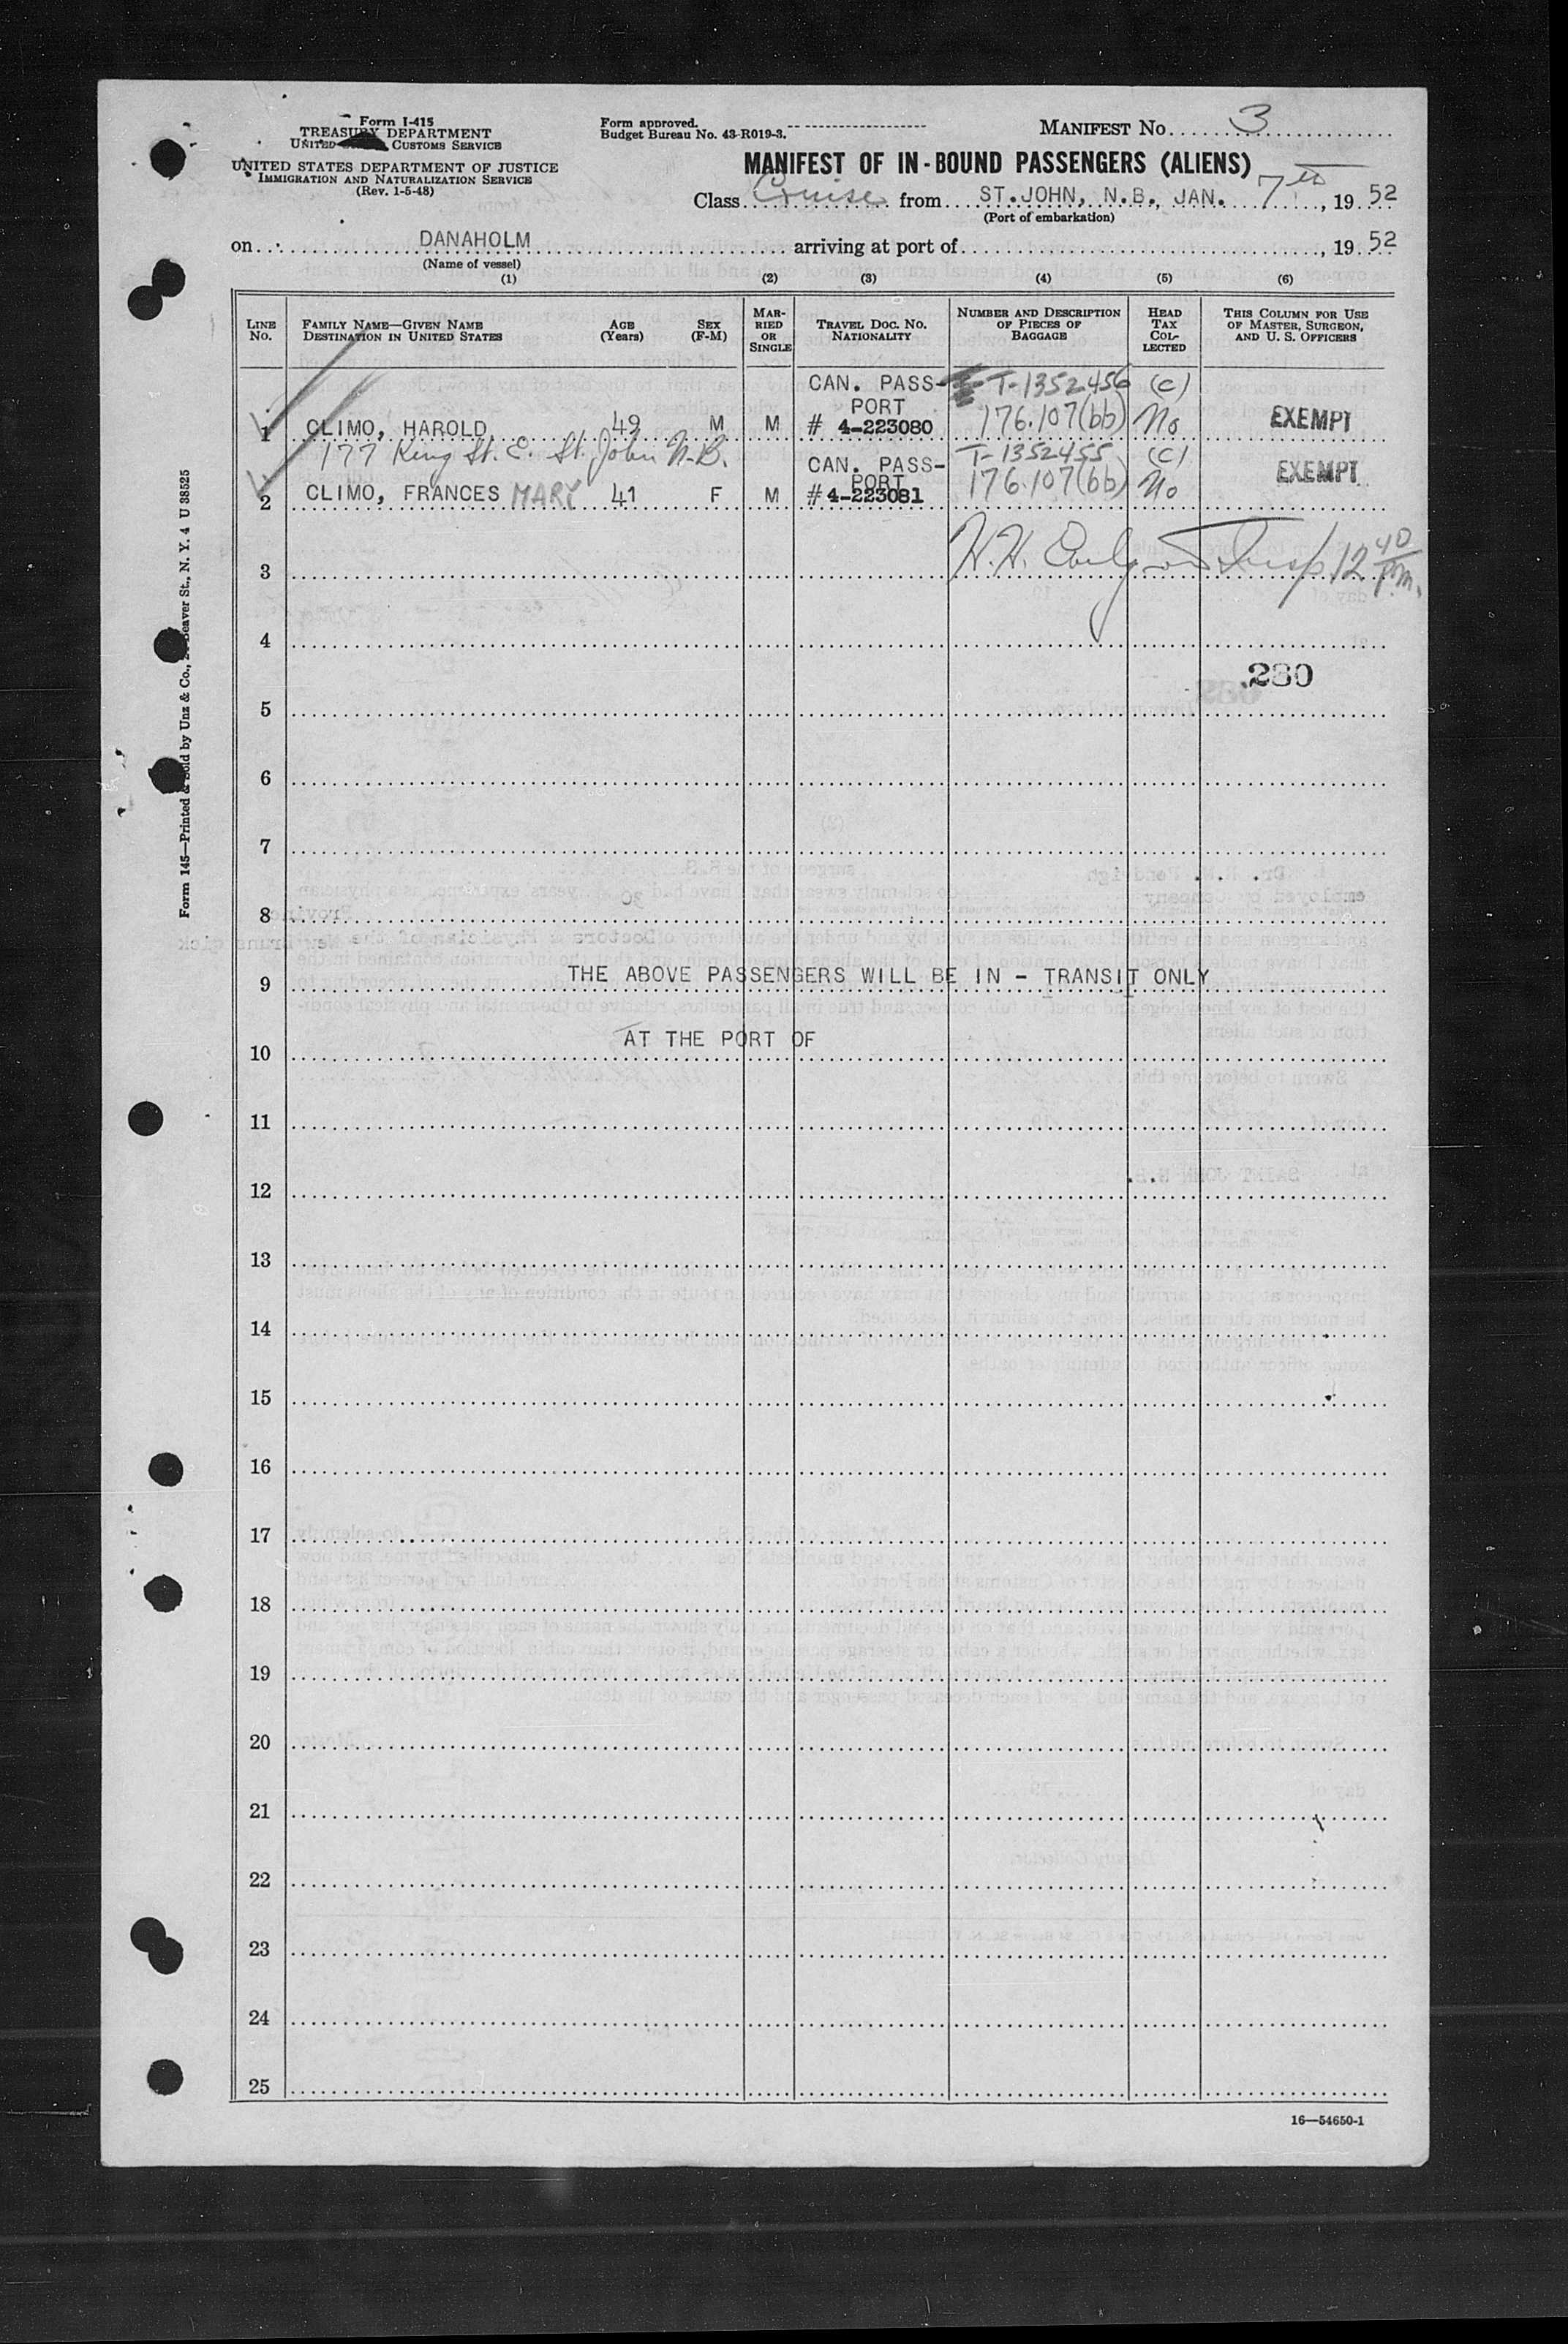 Form I-415
TREASURY DEPARTMENT
UNITED CUSTOMS SERVICE
UNITED STATES DEPARTMENT OF JUSTICE
IMMIGRATION AND NATURALIZATION SERVICE
(Rev. 1-5-48)
Form approved.
Budget Bureau No. 43-R019-3.
MANIFEST NO. 3
MANIFEST OF IN-BOUND PASSENGERS (ALIENS)
Class Cruise from ST. JOHN, N.B., JAN. 7th, 1952
(Port of embarkation)
on DANAHOLM arriving at port of , 1952
(Name of vessel)
(1) (2) (3) (4) (5) (6)
LINE NO.
FAMILY NAME—GIVEN NAME
DESTINATION IN UNITED STATES
AGE (Years)
SEX (F-M)
MARRIED OR SINGLE
TRAVEL DOC. NO.
NATIONALITY
NUMBER AND DESCRIPTION OF PIECES OF BAGGAGE
HEAD TAX COLLECTED
THIS COLUMN FOR USE OF MASTER, SURGEON, AND U. S. OFFICERS
CAN. PASS- T-1352456 (c)
PORT
1 CLIMO, HAROLD 49 M M # 4-223080 176.107(bb) No EXEMPT
177 King St. E. St. John N.B.
CAN. PASS- T-1352455 (c)
PORT
2 CLIMO, FRANCES MARY 41 F M # 4-223081 176.107(bb) No EXEMPT
3 H.H. Insp 12 40 P.m.
4
280
5
6
7
8
9 THE ABOVE PASSENGERS WILL BE IN - TRANSIT ONLY
10 AT THE PORT OF
11
12
13
14
15
16
17
18
19
20
21
22
23
24
25
16—54650-1
Form 145—Printed & Sold by Unz & Co., Beaver St., N. Y. 4 U 38525